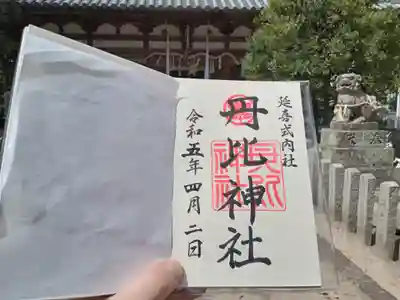 延喜式内社
丹比神社
令和五年四月二日